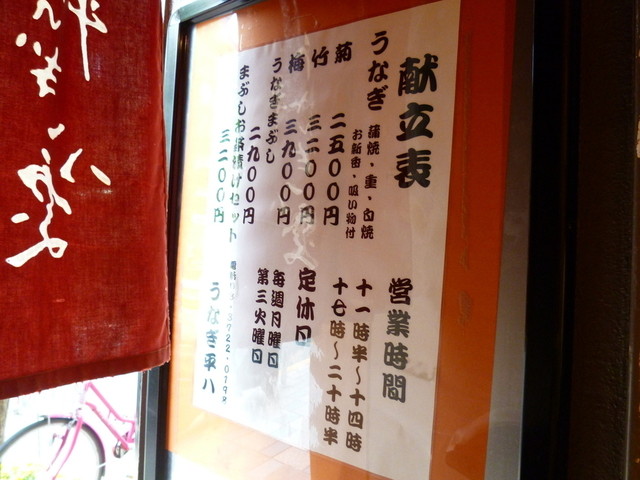 献立表
うなぎ 蒲焼・重・白焼
お新香・吸い物付
菊 二五〇〇円
竹 三二〇〇円
梅 三九〇〇円
うなぎまぶし
二九〇〇円
まぶしお茶漬けセット
三二〇〇円
営業時間
十一時半〜十四時
十七時〜二十時半
定休日
毎週月曜日
第三火曜日
3722-0198
うなぎ平八